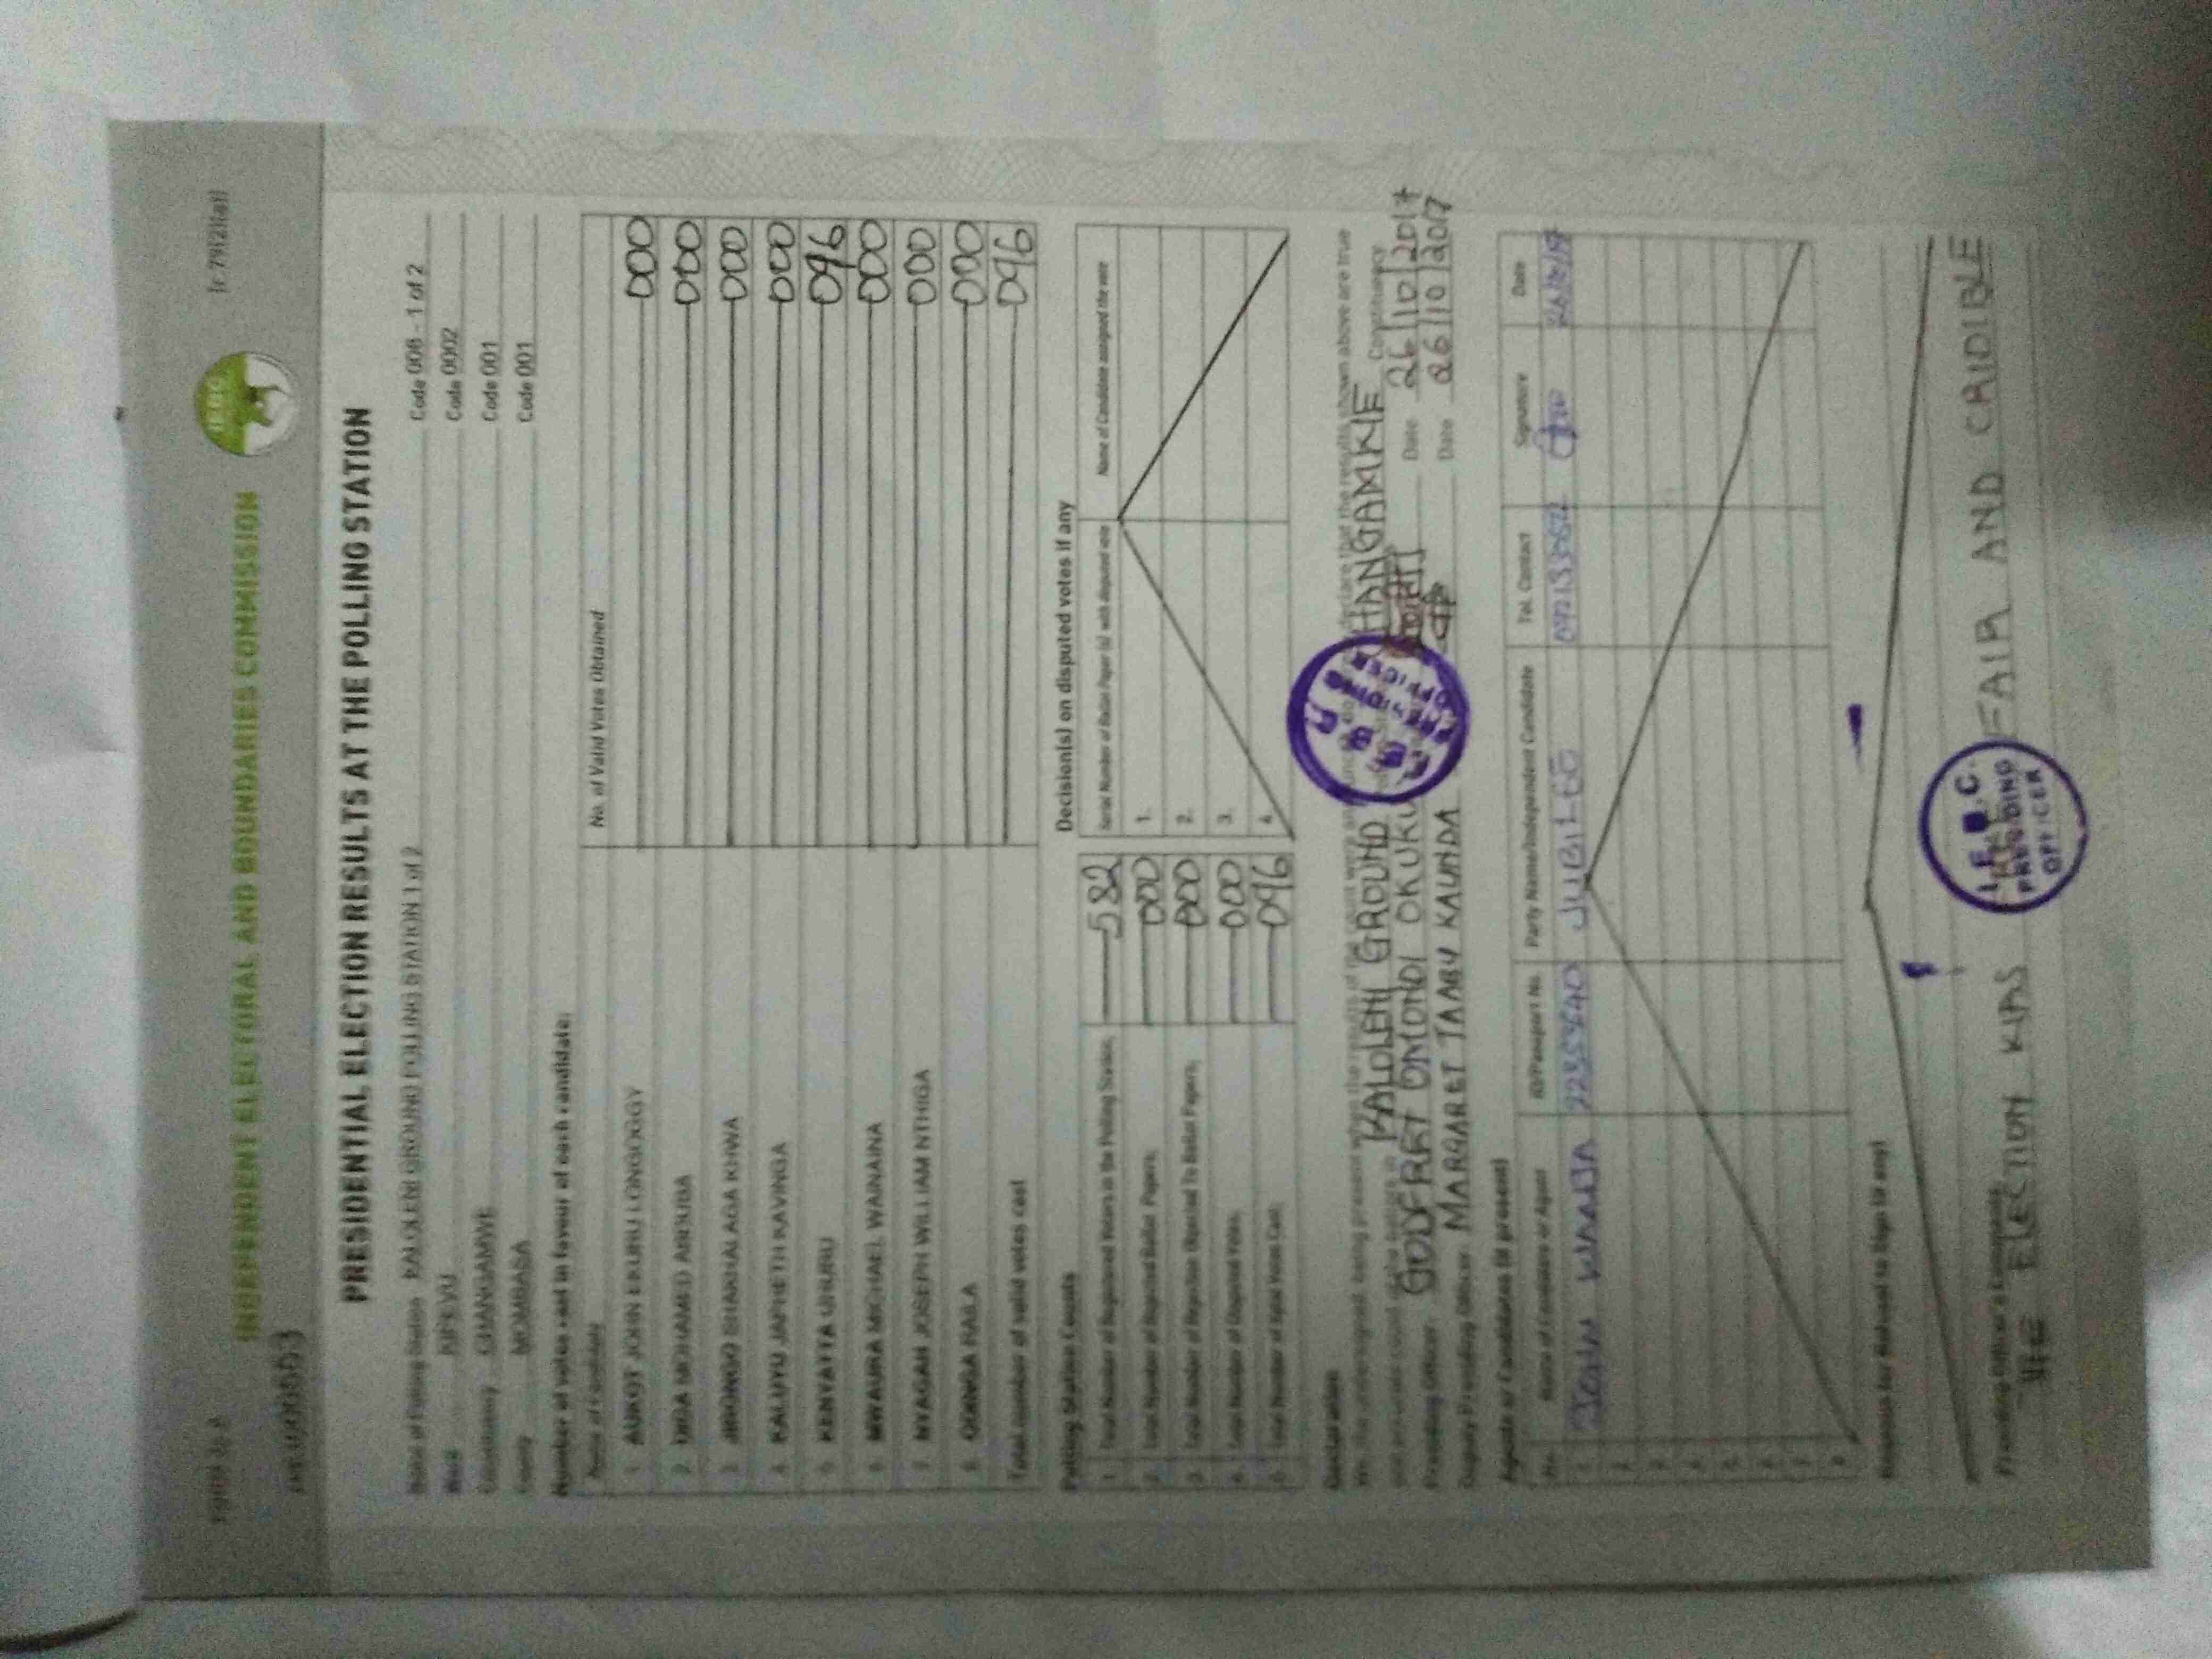 FORM 34 A
(r.79(2)(a))
IEBC
INDEPENDENT ELECTORAL AND BOUNDARIES COMMISSION
PRESIDENTIAL ELECTION RESULTS AT THE POLLING STATION
Name of Polling Station KALOLENI GROUND POLLING STATION 1 of 2 Code 008 - 1 of 2
Ward KIPEVU Code 0002
Constituency CHANGAMWE Code 001
County MOMBASA Code 001
Number of votes cast in favour of each candidate:
Name of Candidate No. of Valid Votes Obtained
1. AUKOT JOHN EKURU LONGOGGY 000
2. DIDA MOHAMED ABDUBA 000
3. JIRONGO SHAKHALAGA KHWA 000
4. KALUYU JAPHETH KAVINGA 000
5. KENYATTA UHURU 096
6. MWAURA MICHAEL WAINAINA 000
7. NYAGAH JOSEPH WILLIAM NTHIGA 000
8. ODINGA RAILA 000
Total number of valid votes cast 096
Polling Station Counts
1. Total Number of Registered Voters in the Polling Station; 582
2. Total Number of Rejected Ballot Papers; 000
3. Total Number of Rejection Objected To Ballot Papers; 000
4. Total Number of Disputed Votes; 000
5. Total Number of Valid Votes Cast; 096
Decision(s) on disputed votes if any
Serial Number of Ballot Paper (s) with disputed vote Name of Candidate assigned the vote
1.
2.
3.
4.
Declaration
We, the undersigned, being present when the results of the count were declare that the results shown above are true
KALOLENI GROUND CHANGAMWE Constituency
Presiding Officer GODFREY OMONDI OKUKU Date 26/10/2017
Deputy Presiding Officer MARGARET TAABU KAUNDA Date 26/10/2017
PRESIDING OFFICER
Agents or Candidates (if present)
No. Name of Candidate or Agent ID/Passport No. Party Name/Independent Candidate Tel. Contact Signature Date
1. JUBILEE
2.
3.
4.
5.
6.
7.
8.
Reasons for Refusal to Sign (if any)
Presiding Officer's Comments
THE ELECTION WAS FAIR AND CRIDIBLE
I.E.B.C.
PRESIDING
OFFICER